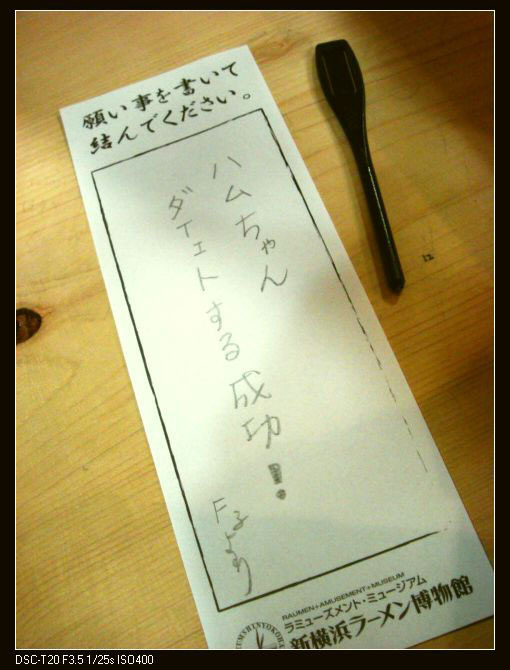 願い事を書いて
結んでください。
ハムちゃん
ダイエトする成功!
Fより
RAUMEN+AMUSEMENT+MUSEUM
ラミューズメント・ミュージアム
新横浜ラーメン博物館
DSC-T20 F3.5 1/25s ISO400